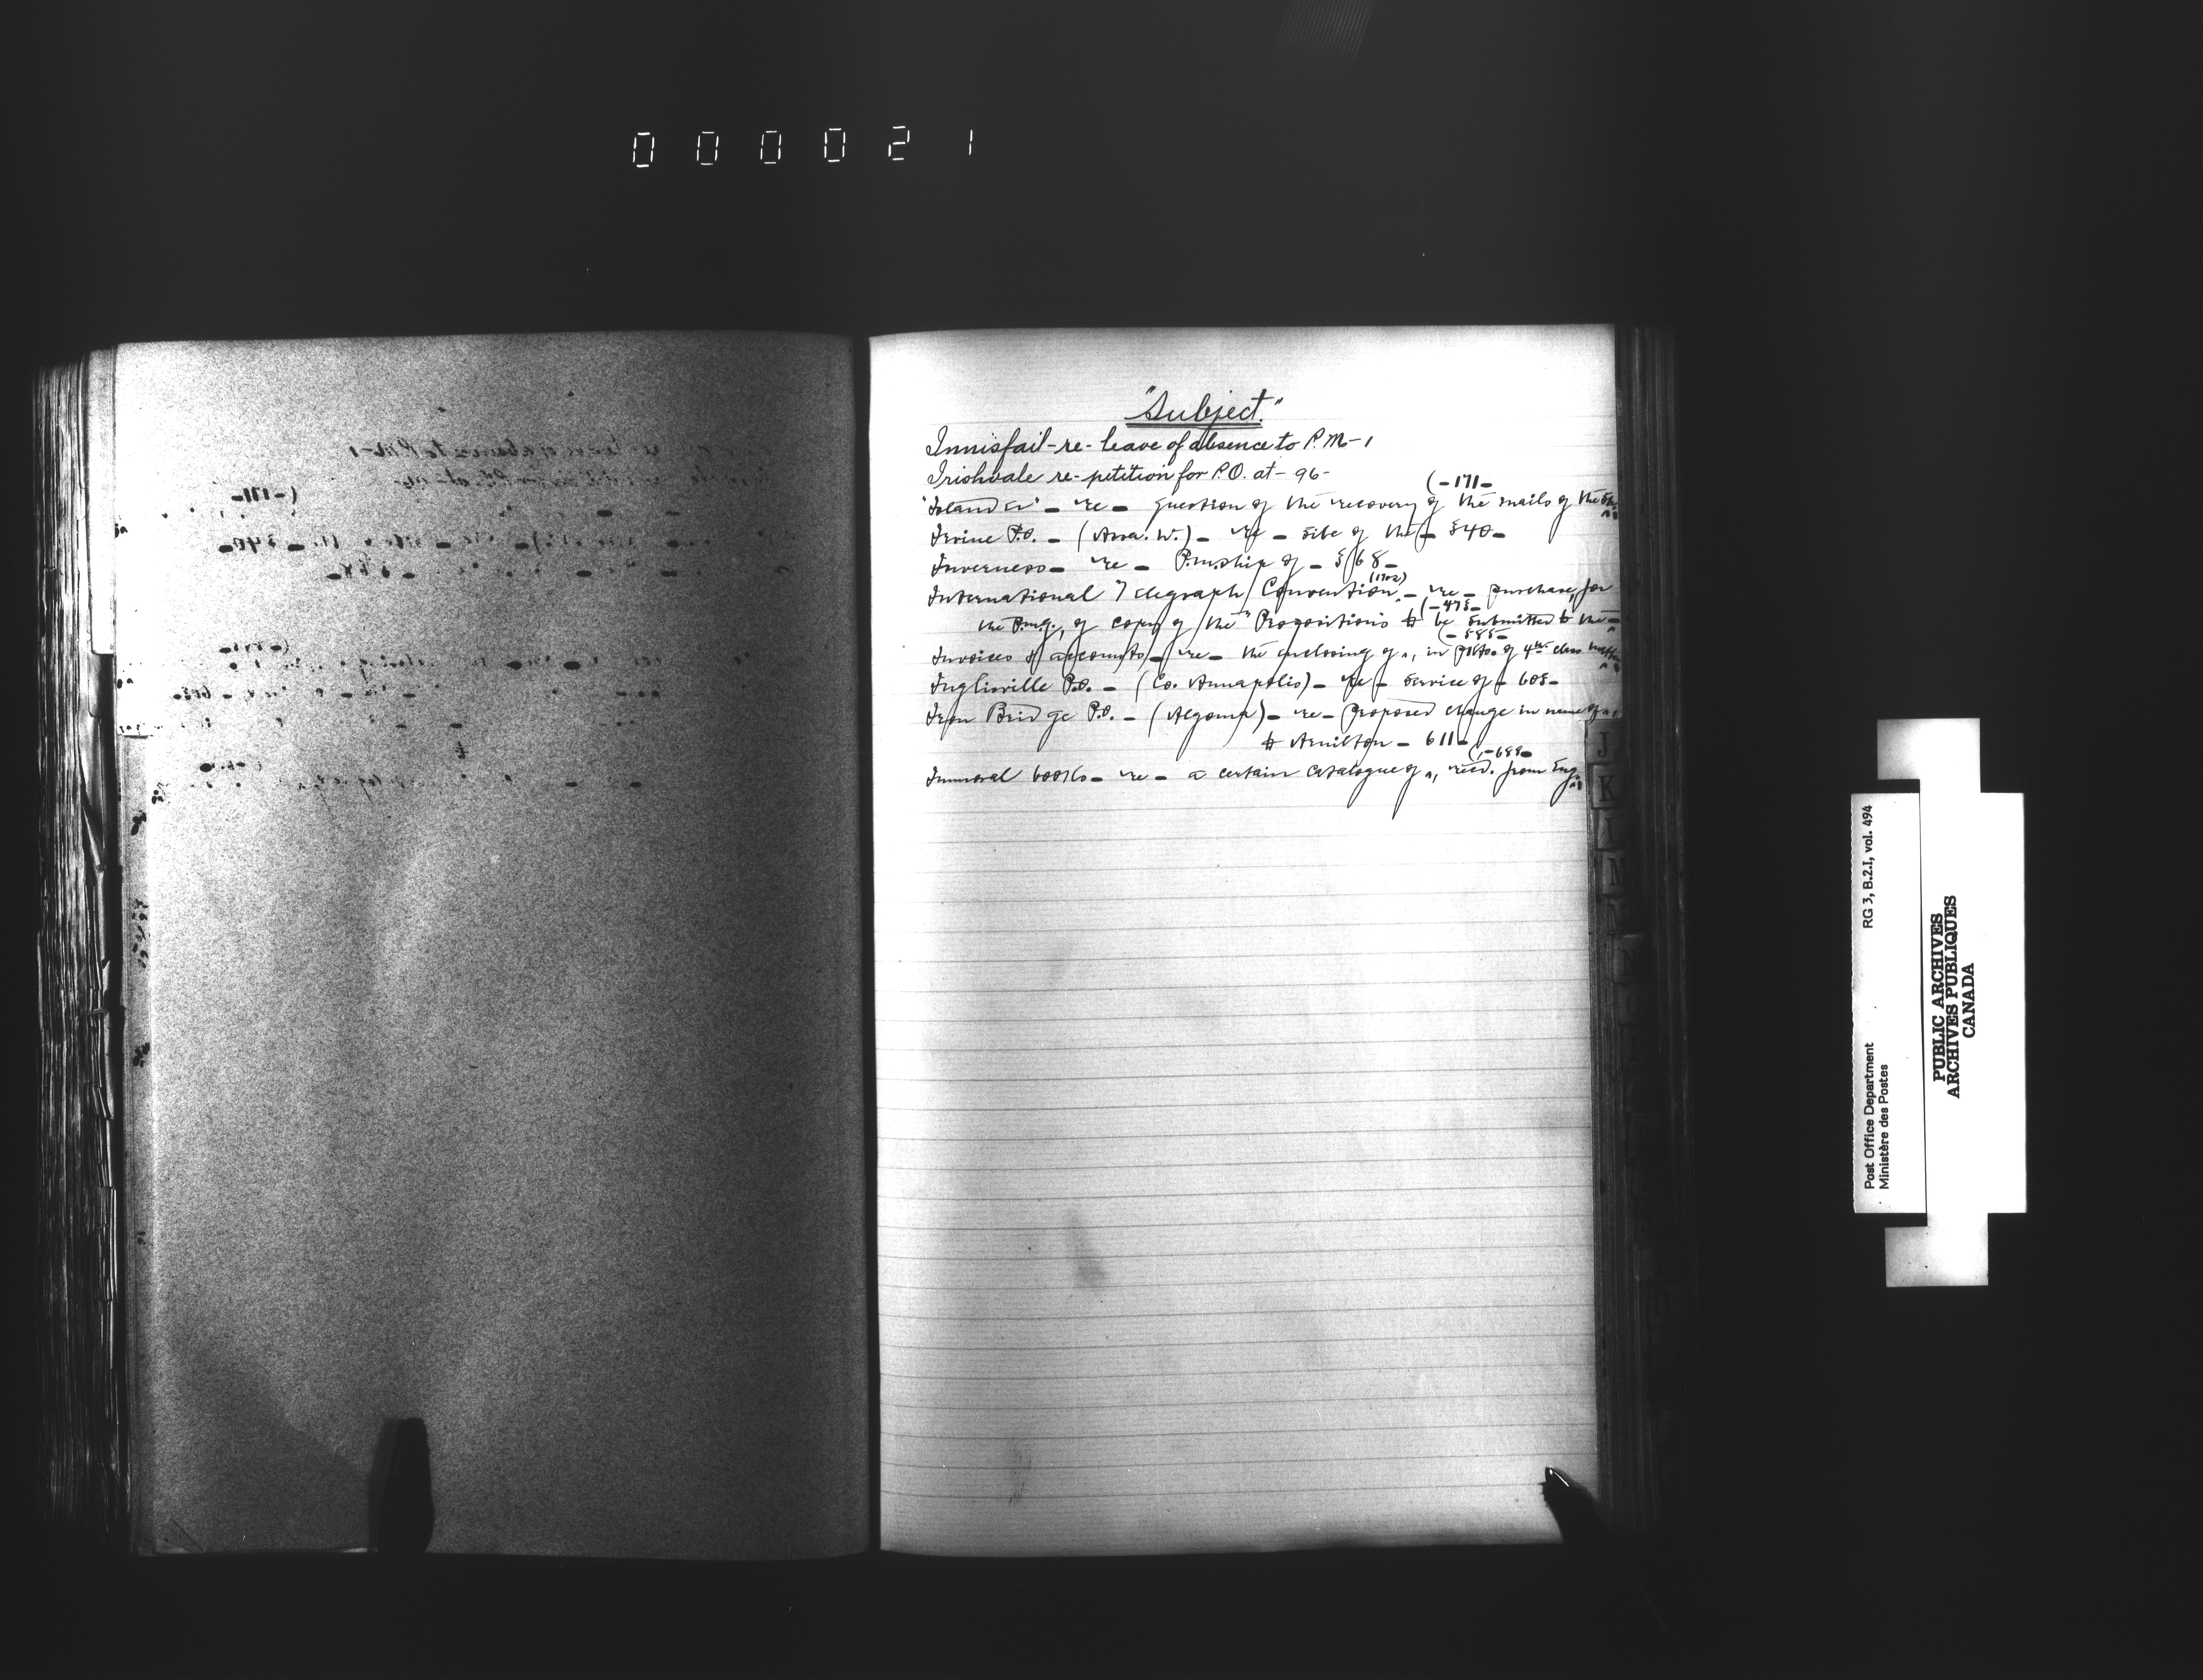 000021
"Subject."
Innisfail-re-leave of absence to P.M-1
Irishvale re-petition for P.O. at-96-
(-171-
"Islander" - re - question of the recovery of the mails of the
Irvine P.O. - (Assa. W.) - re - site of the - 540-
Inverness - re - P.m.ship of - 568-
(1902)
International Telegraph Convention - re - purchase, for
(-475-
the P.m.g., of copy of the "Propositions to be submitted to the -
(-585-
Invoices & accounts - re - the enclosing of ", in pkts. of 4th class matter
Inglisville P.O. - (Co. Annapolis) - re - service of - 605-
Iron Bridge P.O. - (Algoma) - re - proposed change in name of "
to Hamilton - 611-
(-688-
Immoral books - re - a certain catalogue of ", recd. from Eng.
J
K
L
M
N
O
RG 3, B.2.I, vol. 494
Post Office Department
Ministère des Postes
PUBLIC ARCHIVES
ARCHIVES PUBLIQUES
CANADA